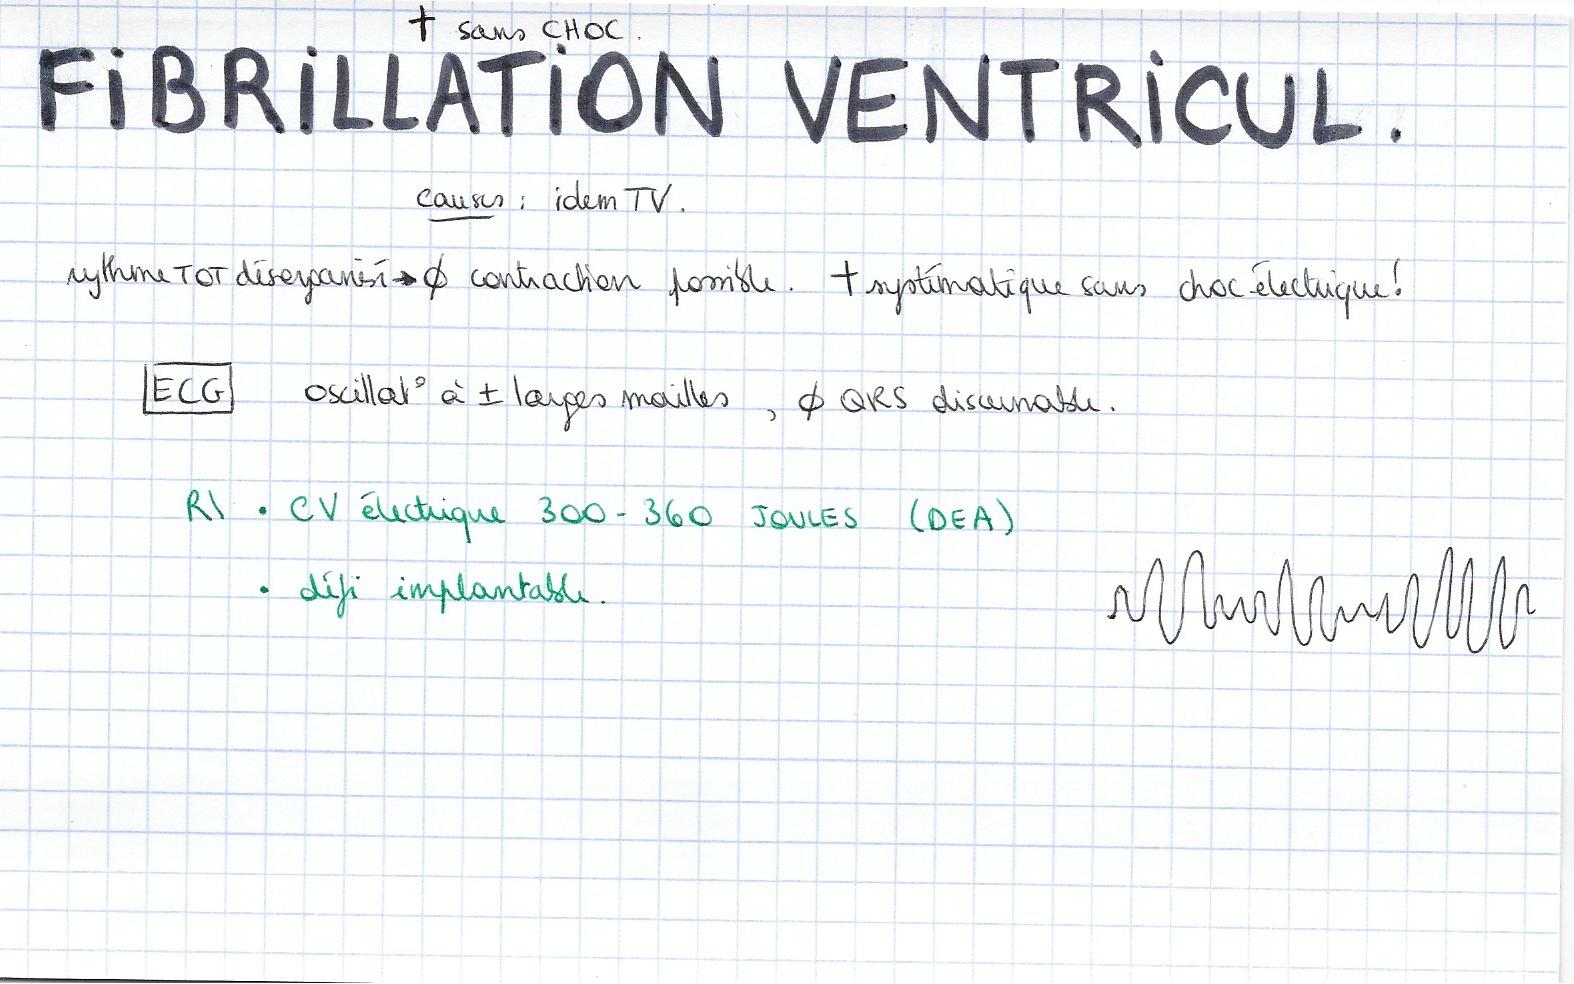 † sans CHOC.
FiBRiLLATiON VENTRiCUL.
causes : idem TV.
rythme TOT désorganisé → ∅ contraction possible. † systématique sans choc électrique !
ECG oscillat° à ± larges mailles, ∅ QRS discernable.
R\ • CV électrique 300 - 360 JOULES (DEA)
• défi implantable.